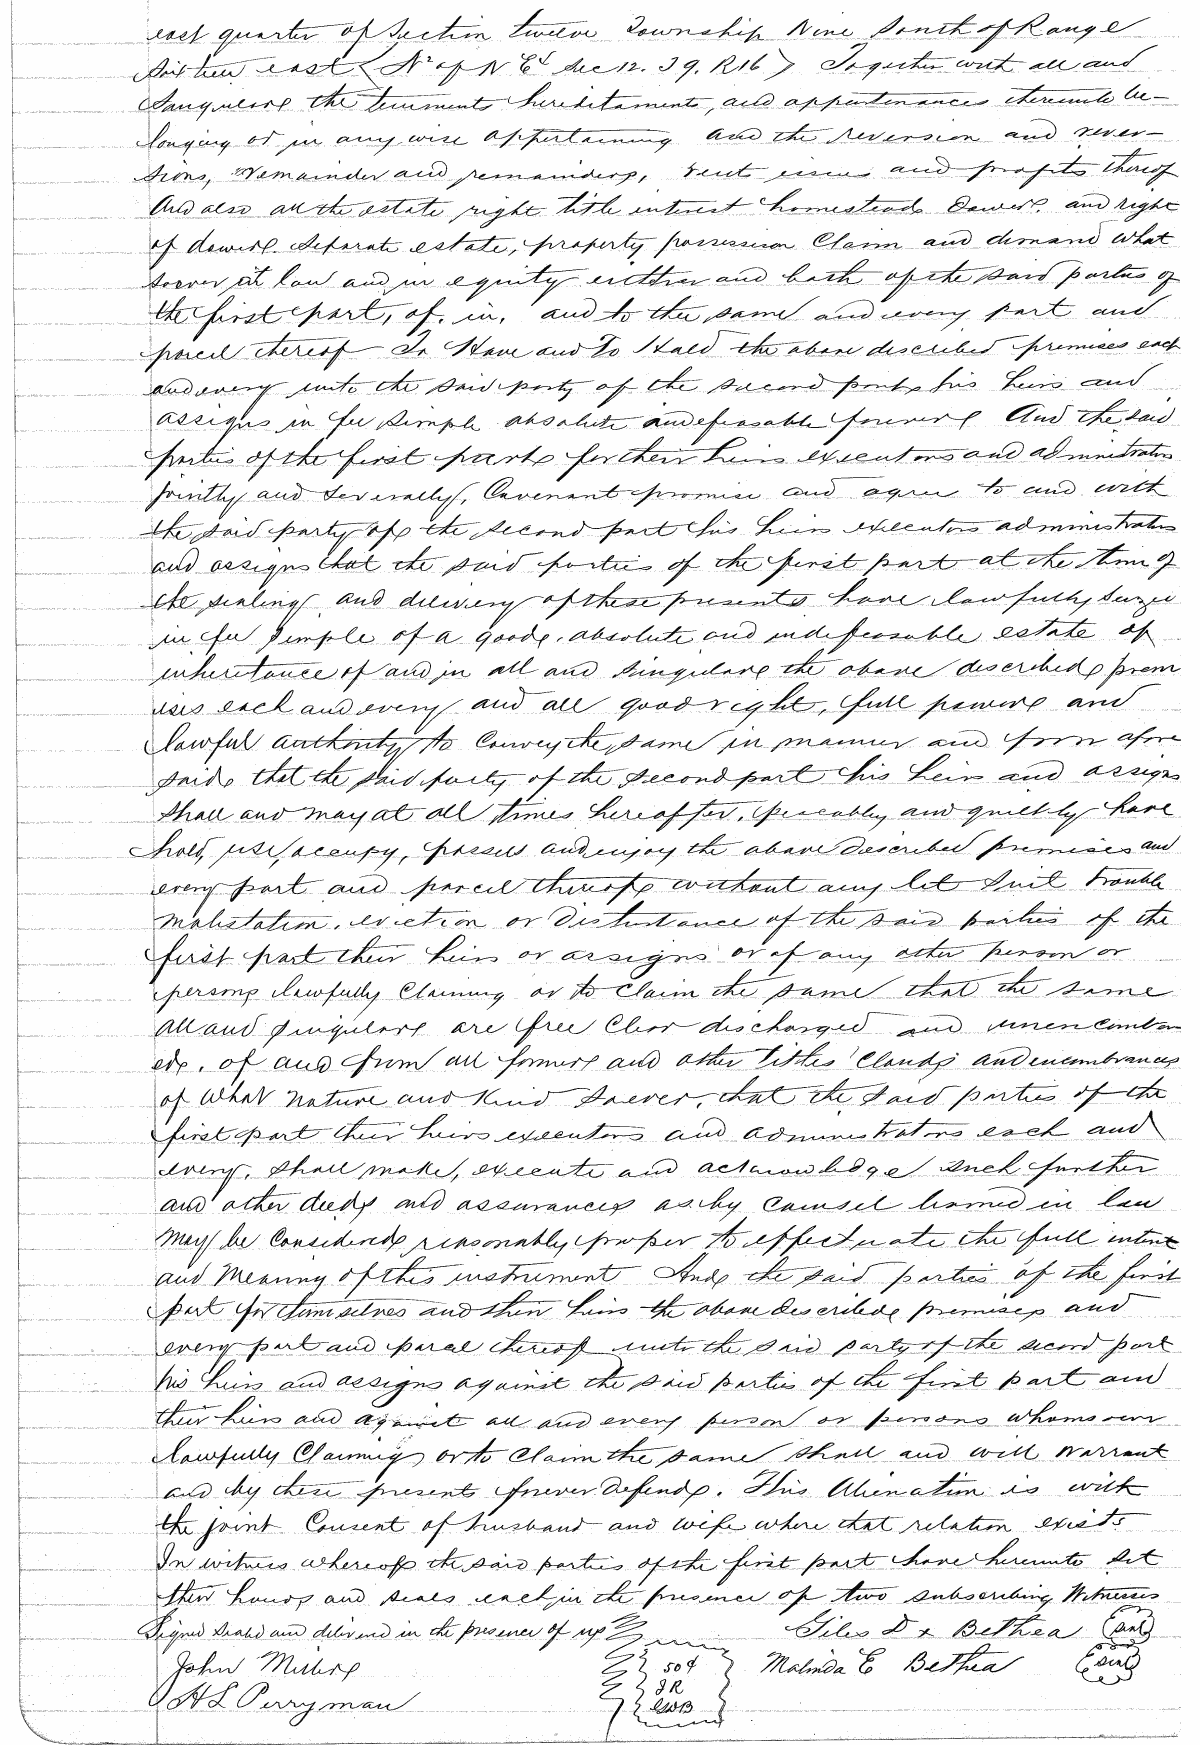 east quarter of Section twelve Township Nine South of Range
Sixteen east (N² of N E⁴ Sec 12. T 9. R16) Together with all and
Singulare the tenements hereditaments, and appurtenances thereunto be-
longing or in any wise appertaining and the reversion and rever-
sions, remainder and remainders, rents issues and profits thereof
And also all the estate right title interest homestead Dower, and right
of dower. Separate estate, property possession Claim and demand what
soever at law and in equity either and both of the said parties of
the first part, of, in, and to the same and every part and
parcel thereof To Have and To Hold the above described premises each
and every unto the said party of the second part his heirs and
assigns in fee simple absolute indefeasable forever And the said
parties of the first part for their heirs executors and administrators
jointly and Severally, Covenant promise and agree to and with
the said party of the second part his heirs executors administrators
and assigns that the said parties of the first part at the time of
the sealing and delivery of these presents have lawfully Seized
in fee Simple of a good, absolute and indefeasable estate of
inheritance of and in all and Singulare the above described prem
ises each and every and all good right, full power and
lawful authority to Convey the same in manner and form afore
said, that the said party of the second part his heirs and assigns
Shall and may at all times hereafter, peaceably and quietly have
hold, use, occupy, possess and enjoy the above described premises and
every part and parcel thereof without any let Suit trouble
molistation, eviction or disturbance of the said parties of the
first part their heirs or assigns or of any other person or
persons lawfully Claiming or to Claim the same that the same
all and Singulare are free Clear discharged and unencumber
ed, of and from all former and other Tittles Clouds and encumbrances
of what nature and kind soever, that the Said parties of the
first part their heirs executors and administrators each and
every, Shall make, execute and acknowledge such further
and other deeds and assurances as by Counsel learned in law
may be Considered reasonably proper to effectuate the full intent
and Meaning of this instrument And the said parties of the first
part for themselves and their heirs the above described premises and
every part and parcel thereof unto the said party of the second part
his heirs and assigns against the said parties of the first part and
their heirs and against all and every person or persons whomsoever
lawfully Claiming or to Claim the same Shall and will Warrant
and by these presents forever Defend. This Alienation is with
the joint Consent of husband and wife where that relation exists
In witness whereof the said parties of the first part have hereunto set
their hands and seals each in the presence of two subscribing Witnesses
Signed Sealed and delivered in the presence of us Giles D x Bethea (seal)
John Millere 50¢ Malinda E Bethea (seal)
H L Perryman JR